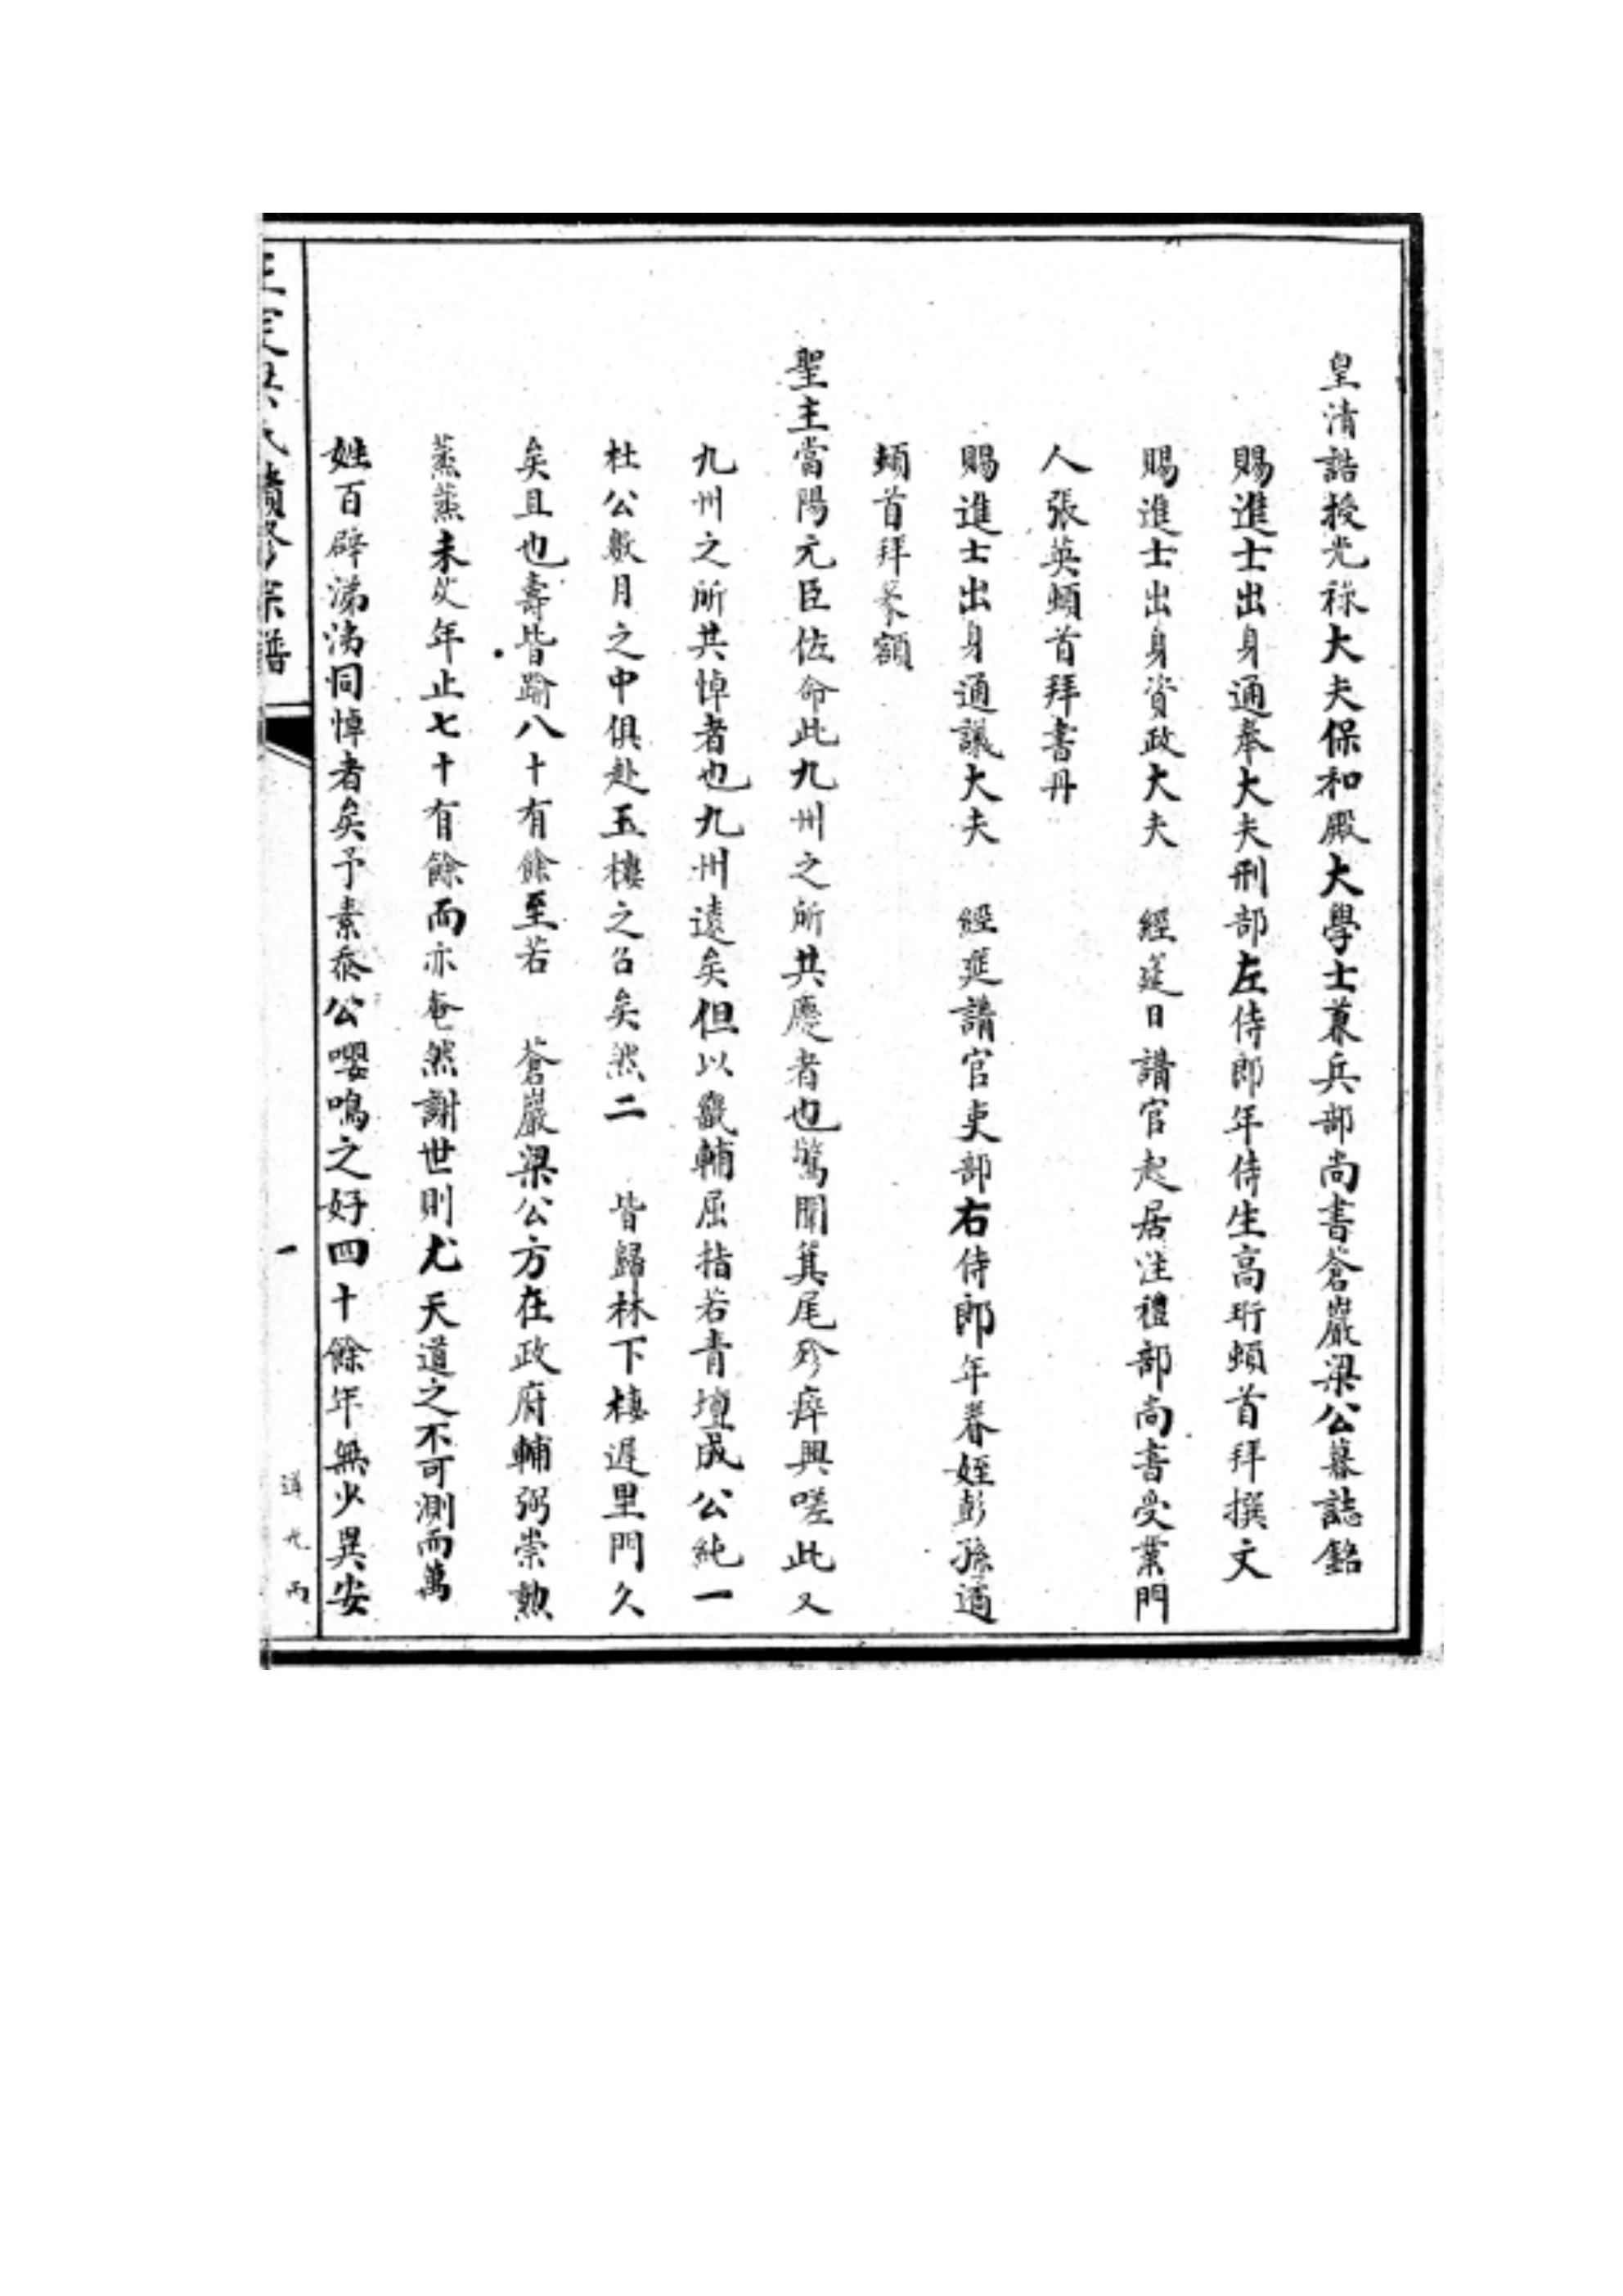 皇清誥授光祿大夫保和殿大學士兼兵部尚書蒼巖梁公墓誌銘
賜進士出身通奉大夫刑部左侍郎年侍生高珩頓首拜撰文
賜進士出身資政大夫 經筵日講官起居注禮部尚書受業門
人張英頓首拜書丹
賜進士出身通議大夫 經筵講官吏部右侍郎年眷姪彭孫遹
頓首拜篆額
聖主當陽元臣佐命此九州之所共慶者也驚聞箕尾殄瘁興嗟此又
九州之所共悼者也九州遠矣但以畿輔屈指若青壇成公純一
杜公數月之中俱赴玉樓之召矣然二 皆歸林下棲遲里門久
矣且也壽皆踰八十有餘至若 蒼巖梁公方在政府輔弼崇勲
蒸蒸未艾年止七十有餘而亦奄然謝世則尤天道之不可測而萬
姓百辟涕洟同悼者矣予素忝公嚶鳴之好四十餘年無少異安
氏續修宗譜
一